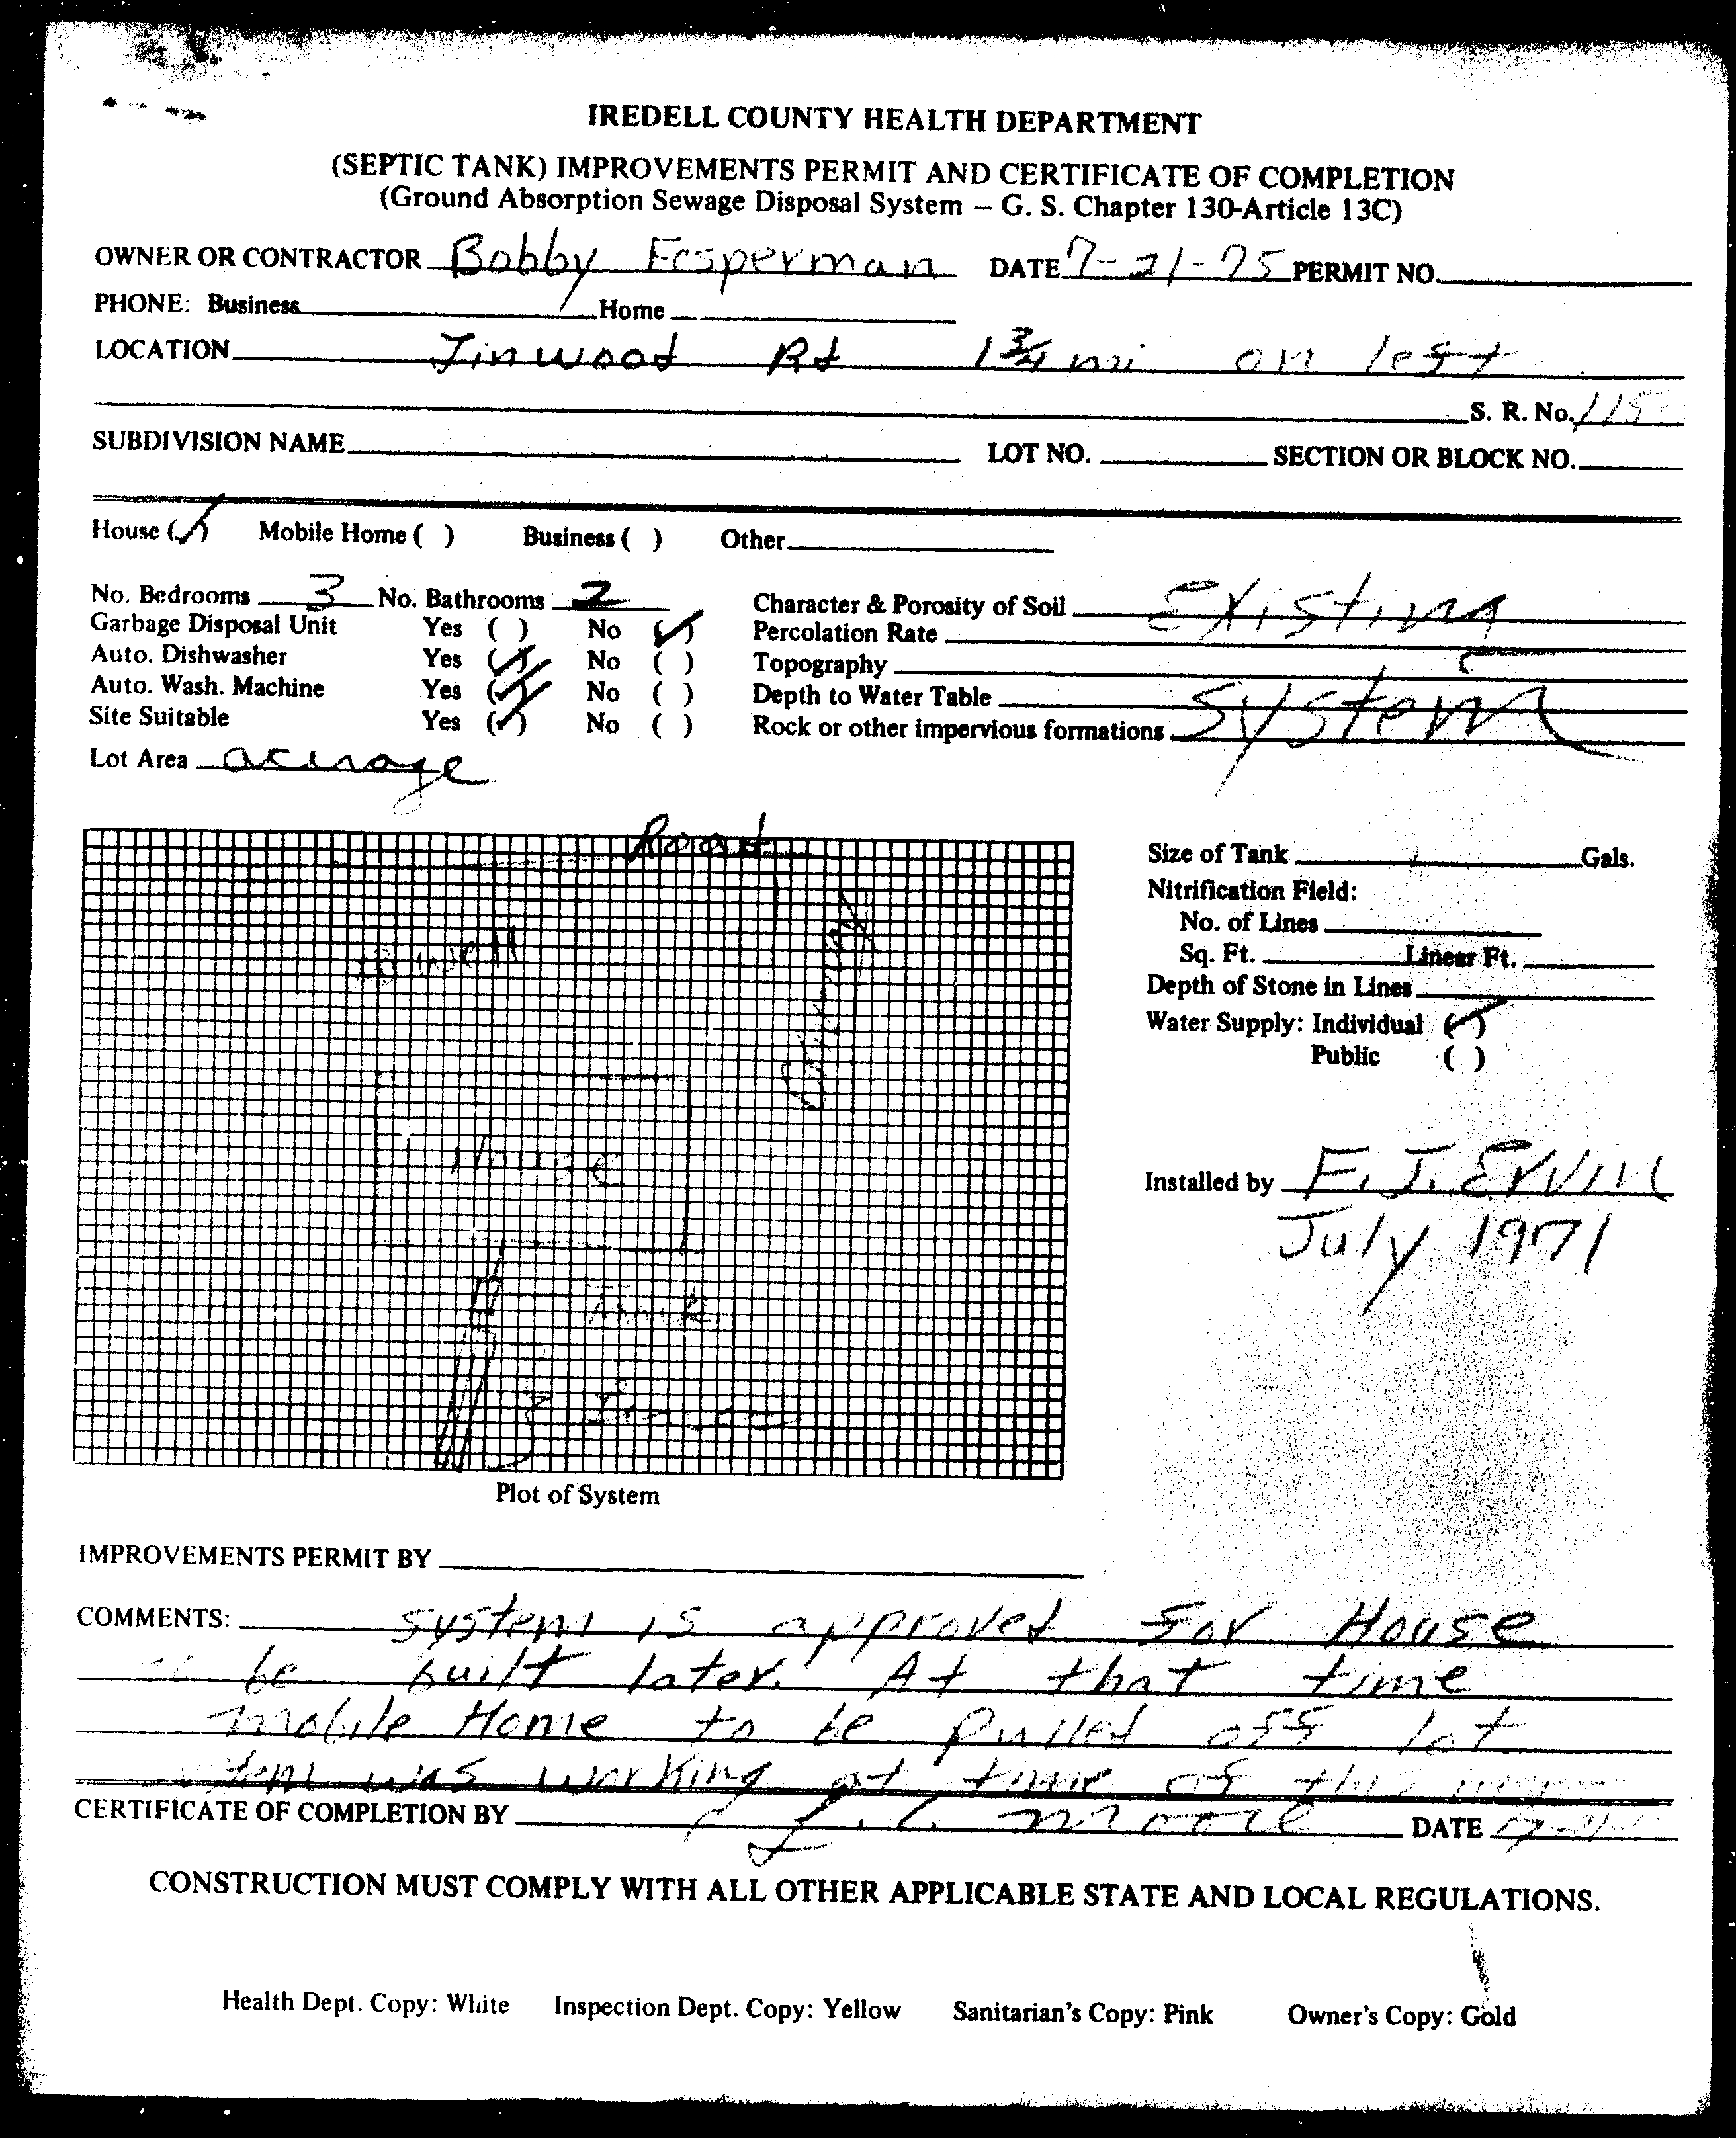 IREDELL COUNTY HEALTH DEPARTMENT
(SEPTIC TANK) IMPROVEMENTS PERMIT AND CERTIFICATE OF COMPLETION
(Ground Absorption Sewage Disposal System – G. S. Chapter 130-Article 13C)
OWNER OR CONTRACTOR Bobby Fesperman DATE 7-21-75 PERMIT NO.
PHONE: Business Home
LOCATION Linwood Rd 1 3/4 mi on left
S. R. No. 115
SUBDIVISION NAME LOT NO. SECTION OR BLOCK NO.
House (✓) Mobile Home ( ) Business ( ) Other
No. Bedrooms 3 No. Bathrooms 2 Character & Porosity of Soil Existing
Garbage Disposal Unit Yes ( ) No (✓) Percolation Rate
Auto. Dishwasher Yes (✓) No ( ) Topography
Auto. Wash. Machine Yes (✓) No ( ) Depth to Water Table System
Site Suitable Yes (✓) No ( ) Rock or other impervious formations
Lot Area acreage
Road
Size of Tank Gals.
Nitrification Field:
No. of Lines
well
Driveway
Sq. Ft. Linear Ft.
Depth of Stone in Lines
Water Supply: Individual (✓)
Public ( )
House
Installed by F. J. Ervin
July 1971
Tank
3 Lines
Plot of System
IMPROVEMENTS PERMIT BY
COMMENTS: system is approved for House
to be built later. At that time
mobile Home to be pulled off lot
was working at time of this
CERTIFICATE OF COMPLETION BY Moore DATE
CONSTRUCTION MUST COMPLY WITH ALL OTHER APPLICABLE STATE AND LOCAL REGULATIONS.
Health Dept. Copy: White Inspection Dept. Copy: Yellow Sanitarian's Copy: Pink Owner's Copy: Gold